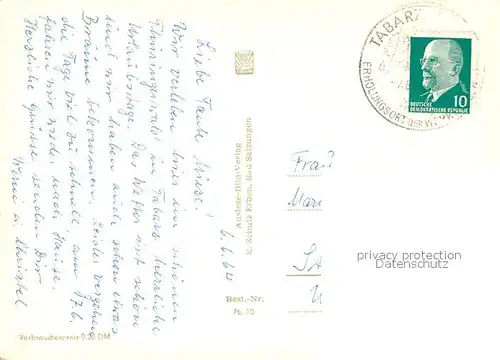 Liebe Tante Miese!
6.6.64
Wir verleben hier im schönen
Thüringerwald in Tabarz herrliche
Urlaubstage. Das Wetter ist schön
und wir haben auch schon etwas
Bräune bekommen. Leider vergehen
die Tage viel zu schnell, am 17.6.
fahren wir wieder nach Hause.
Herzliche Grüsse senden Dir
u. Christel
Auslese-Bild-Verlag
K. Schulz Erben, Bad Salzungen
Best.-Nr.
Fb 10
Verbraucherpreis 0,20 DM
TABARZ
ERHOLUNGSORT DER
DEUTSCHE
DEMOKRATISCHE REPUBLIK
10
Frau
privacy protection
Datenschutz